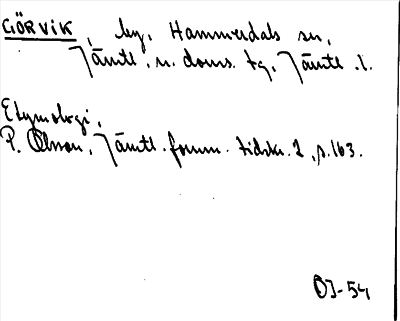 GÖRVIK, by, Hammerdals sn,
Jämtl. n. doms. tg, Jämtl. l.
Etymologi,
P. Olsson, Jämtl. fornm. tidskr. 2, s. 163.
OJ-54